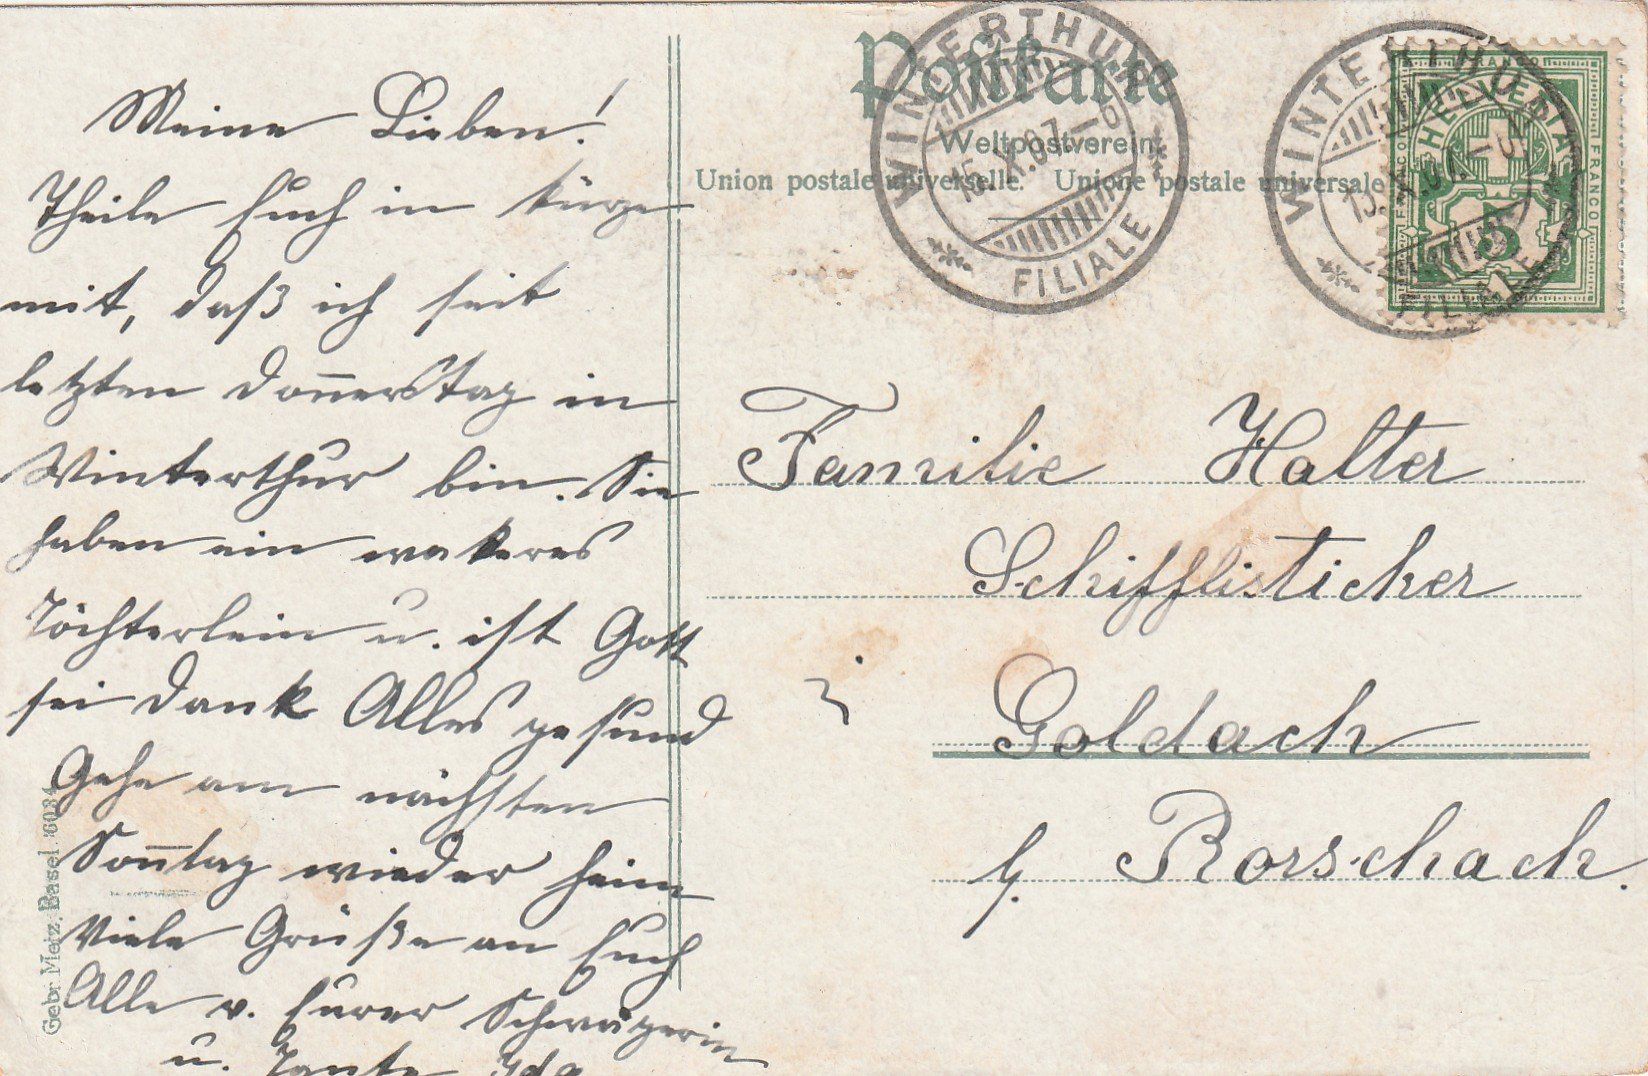 Postkarte
Weltpostverein.
Union postale universelle. Unione postale universale
WINTERTHUR
15.IX.07.
FILIALE
WINTERTHUR
FILIALE
FRANCO
HELVETIA
FRANCO
FRANCO
5
Meine Lieben!
Theile Euch in kürze
mit, daß ich seit
letzten Donnerstag in
Winterthur bin. Sie
haben ein wakeres
Töchterlein u. ist Gott
sei Dank Alles gesund
Gehe am nächsten
Sonntag wieder heim
Viele Grüße an Euch
Alle v. Eurer Schwägerin
u. Tante Ida
Familie Halter
Schifflisticker
Goldach
b. Rorschach.
Gebr. Metz, Basel. 6034